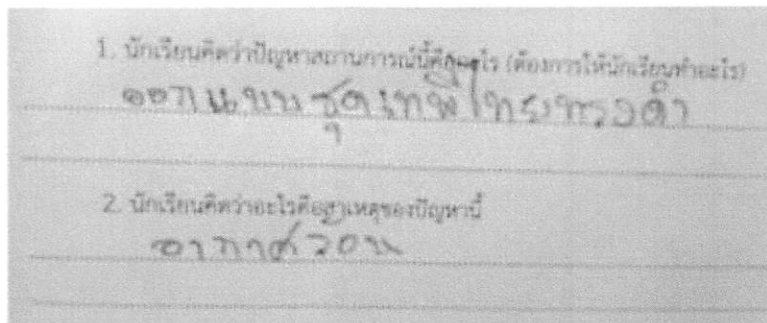 1. นักเรียนคิดว่าปัญหาสถานการณ์นี้คืออะไร (ต้องการให้นักเรียนทำอะไร)
ออกแบบชุดเทพีไทรทรงดำ
2. นักเรียนคิดว่าอะไรคือสาเหตุของปัญหานี้
อากาศร้อน